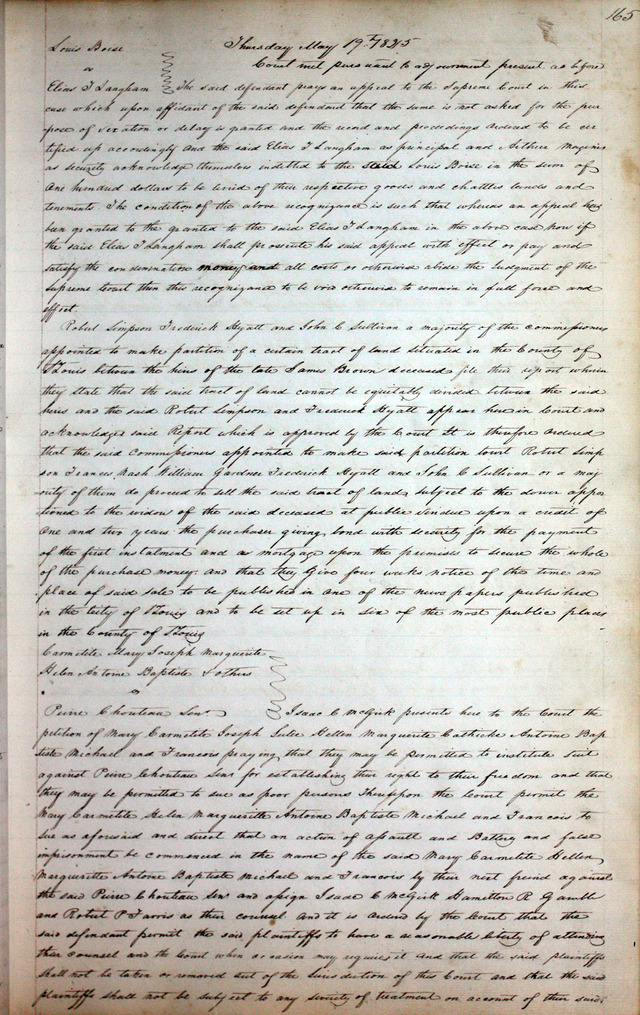 165
Thursday May 19th 1825
Louis Boise
Court met pursuant to adjournment present as before
vs
Elias T Langham The said defendant prays an appeal to the Supreme Court in this
case which upon affidavit of the said defendant that the same is not asked for the pur
pose of vexation or delay is granted and the record and proceedings ordered to be cer
tified up accordingly And the said Elias T Langham as principal and Arthur Magenis
as security acknowledge themselves indebted to the said Louis Boise in the sum of
One hundred dollars to be levied of their respective goods and chattles lands and
tenements. The condition of the above recognizance is such that whereas an appeal has
been granted to the granted to the said Elias T Langham in the above case now if
the said Elias T Langham shall prosecute his said appeal with effect or pay and
satisfy the condemnation money and all costs or otherwise abide the Judgment of the
supreme Court then this recognizance to be void otherwise to remain in full force and
effect.
Robert Simpson Frederick Hyatt and John C Sullivan a majority of the commissioners
appointed to make partition of a certain tract of land situated in the County of
St Louis between the heirs of the late James Brown deceased file their report wherein
they State that the said tract of land cannot be equitably divided between the said
heirs and the said Robert Simpson and Frederick Hyatt appear here in Court and
acknowledge said Report which is approved by the Court It is therefore Ordered
that the said commissioners appointed to make said partition Robert Simp
son Frances Nash William Gardner Frederick Hyatt and John C Sullivan or a maj
ority of them do proceed to sell the said tract of land subject to the dower appor
tioned to the widow of the said deceased at public vendue upon a credit of
One and two years the purchaser giving bond with security for the payment
of the first instalment and as mortgage upon the premises to secure the whole
of the purchase money and that they Give four weeks notice of the time and
place of said sale to be published in one of the news papers published
in the City of St Louis and to be set up in six of the most public places
in the County of St Louis
Carmelite Mary Joseph Marguerite
Helen Antoine Baptiste & others
vs
Pierre Chouteau Senr Isaac C McGirk presents here to the Court the
petition of Mary Carmelite Joseph Julie Hellen Marguerite Antoine Bap
tiste Michael and Francois praying that they may be permitted to institute Suit
against Pierre Chouteau Senr for establishing their right to their freedom and that
they may be permitted to sue as poor persons Thereuppon the Court permit the
Mary Carmelite Helen Margueritte Antoine Baptiste Michael and Francois to
sue as aforesaid and direct that an action of assault and Battery and false
imprisonment be commenced in the name of the said Mary Carmelite Hellen
Margueritte Antoine Baptiste Michael and Francois by their next friend against
the said Pierre Chouteau Senr and assign Isaac C McGirk Hamilton R Gamble
and Robert P Farris as their counsel and it is ordered by the Court that the
said defendant permit the said plaintiffs to have a reasonable liberty of attending
their counsel and the Court when occasion may require it and that the said plaintiffs
shall not be taken or removed out of the Jurisdiction of this Court and that the said
plaintiffs shall not be subject to any severity of treatment on account of their suit